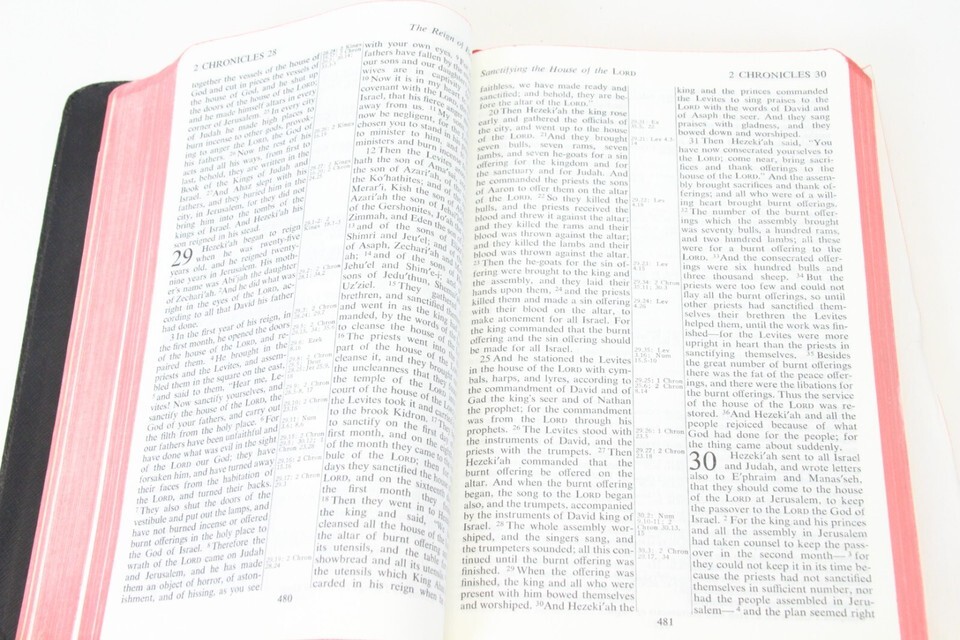 2 CHRONICLES 28
together the vessels of the house of
God and cut in pieces the vessels of
the house of God, and he shut up
the doors of the house of the LORD;
and he made himself altars in every
corner of Jerusalem. 25 In every city
of Judah he made high places to
burn incense to other gods, provok-
ing to anger the LORD, the God of
his fathers. 26 Now the rest of his
acts and all his ways, from first to
last, behold, they are written in the
Book of the Kings of Judah and
Israel. 27 And Ahaz slept with his
fathers, and they buried him in the
city, in Jerusalem, for they did not
bring him into the tombs of the
kings of Israel. And Hezeki'ah his
son reigned in his stead.
29 Hezeki'ah began to reign
when he was twenty-five
years old, and he reigned twenty-
nine years in Jerusalem. His moth-
er's name was Abi'jah the daughter
of Zechari'ah. 2 And he did what was
right in the eyes of the LORD, ac-
cording to all that David his father
had done.
3 In the first year of his reign, in
the first month, he opened the doors
of the house of the LORD, and re-
paired them. 4 He brought in the
priests and the Levites, and assem-
bled them in the square on the east,
5 and said to them, "Hear me, Le-
vites! Now sanctify yourselves, and
sanctify the house of the LORD, the
God of your fathers, and carry out
the filth from the holy place. 6 For
our fathers have been unfaithful and
have done what was evil in the sight
of the LORD our God; they have
forsaken him, and have turned away
their faces from the habitation of
the LORD, and turned their backs.
7 They also shut the doors of the
vestibule and put out the lamps, and
have not burned incense or offered
burnt offerings in the holy place to
the God of Israel. 8 Therefore the
wrath of the LORD came on Judah
and Jerusalem, and he has made
them an object of horror, of aston-
ishment, and of hissing, as you see
480
The Reign of
with your own eyes.
fathers have fallen by the
our sons and our daughters
wives are in captivity
10 Now it is in my heart
covenant with the LORD,
Israel, that his fierce anger
away from us. 11 My
now be negligent, for the
chosen you to stand in
to minister to him,
ministers and burn
12 Then the Levites
hath the son of Ama'sai
the son of Azari'ah, of
the Ko'hathites; and of
Merar'i, Kish the son of
Azari'ah the son of
of the Gershonites, Jo'ah
Zimmah, and Eden the
13 and of the sons of
Shimri and Jeu'el; and
of Asaph, Zechari'ah
ah; 14 and of the sons
Jehu'el and Shim'e-i;
sons of Jedu'thun,
Uz'ziel. 15 They gathered
brethren, and sanctified
and went in as the king
manded, by the words of
to cleanse the house of
16 The priests went into
part of the house of the
cleanse it, and they brought
the uncleanness that they
the temple of the LORD
court of the house of the
the Levites took it and carried
to the brook Kidron.
to sanctify on the first day
first month, and on the eighth
of the month they came to
bule of the LORD; then for
days they sanctified the house
LORD, and on the sixteenth
the first month they
18 Then they went in to
the king and said,
cleansed all the house of the
the altar of burnt offering
its utensils, and the table
showbread and all its utensils.
the utensils which King Ahaz
carded in his reign when
Sanctifying the House of the LORD
2 CHRONICLES 30
faithless, we have made ready and
sanctified; and behold, they are be-
fore the altar of the LORD."
20 Then Hezeki'ah the king rose
early and gathered the officials of
the city, and went up to the house
of the LORD. 21 And they brought
seven bulls, seven rams, seven
lambs, and seven he-goats for a sin
offering for the kingdom and for
the sanctuary and for Judah. And
he commanded the priests the sons
of Aaron to offer them on the altar
of the LORD. 22 So they killed the
bulls, and the priests received the
blood and threw it against the altar;
and they killed the rams and their
blood was thrown against the altar;
and they killed the lambs and their
blood was thrown against the altar.
23 Then the he-goats for the sin of-
fering were brought to the king and
the assembly, and they laid their
hands upon them, 24 and the priests
killed them and made a sin offering
with their blood on the altar, to
make atonement for all Israel. For
the king commanded that the burnt
offering and the sin offering should
be made for all Israel.
25 And he stationed the Levites
in the house of the LORD with cym-
bals, harps, and lyres, according to
the commandment of David and of
Gad the king's seer and of Nathan
the prophet; for the commandment
was from the LORD through his
prophets. 26 The Levites stood with
the instruments of David, and the
priests with the trumpets. 27 Then
Hezeki'ah commanded that the
burnt offering be offered on the
altar. And when the burnt offering
began, the song to the LORD began
also, and the trumpets, accompanied
by the instruments of David king of
Israel. 28 The whole assembly wor-
shiped, and the singers sang, and
the trumpeters sounded; all this con-
tinued until the burnt offering was
finished. 29 When the offering was
finished, the king and all who were
present with him bowed themselves
and worshiped. 30 And Hezeki'ah the
29.21: Lev 4.3-
29.22: Lev
4.18
29.23: Lev
4.15
29.24: Lev
4.26
29.25: 1 Chron
29.26: 1 Chron
23.5
29.27: 2 Chron
23.18
30.2: Num
9.10-11; 2
Chron 30.13,
15
30.3: 2 Chron
29.17, 34
king and the princes commanded
the Levites to sing praises to the
LORD with the words of David and
of Asaph the seer. And they sang
praises with gladness, and they
bowed down and worshiped.
31 Then Hezeki'ah said, "You
have now consecrated yourselves to
the LORD; come near, bring sacri-
fices and thank offerings to the
house of the LORD." And the assem-
bly brought sacrifices and thank of-
ferings; and all who were of a will-
ing heart brought burnt offerings.
32 The number of the burnt offer-
ings which the assembly brought
was seventy bulls, a hundred rams,
and two hundred lambs; all these
were for a burnt offering to the
LORD. 33 And the consecrated offer-
ings were six hundred bulls and
three thousand sheep. 34 But the
priests were too few and could not
flay all the burnt offerings, so until
other priests had sanctified them-
selves their brethren the Levites
helped them, until the work was fin-
ished—for the Levites were more
upright in heart than the priests in
sanctifying themselves. 35 Besides
the great number of burnt offerings
there was the fat of the peace offer-
ings, and there were the libations for
the burnt offerings. Thus the service
of the house of the LORD was re-
stored. 36 And Hezeki'ah and all the
people rejoiced because of what
God had done for the people; for
the thing came about suddenly.
30 Hezeki'ah sent to all Israel
and Judah, and wrote letters
also to E'phraim and Manas'seh,
that they should come to the house
of the LORD at Jerusalem, to keep
the passover to the LORD the God of
Israel. 2 For the king and his princes
and all the assembly in Jerusalem
had taken counsel to keep the pass-
over in the second month— 3 for
they could not keep it in its time be-
cause the priests had not sanctified
themselves in sufficient number, nor
had the people assembled in Jeru-
salem— 4 and the plan seemed right
481